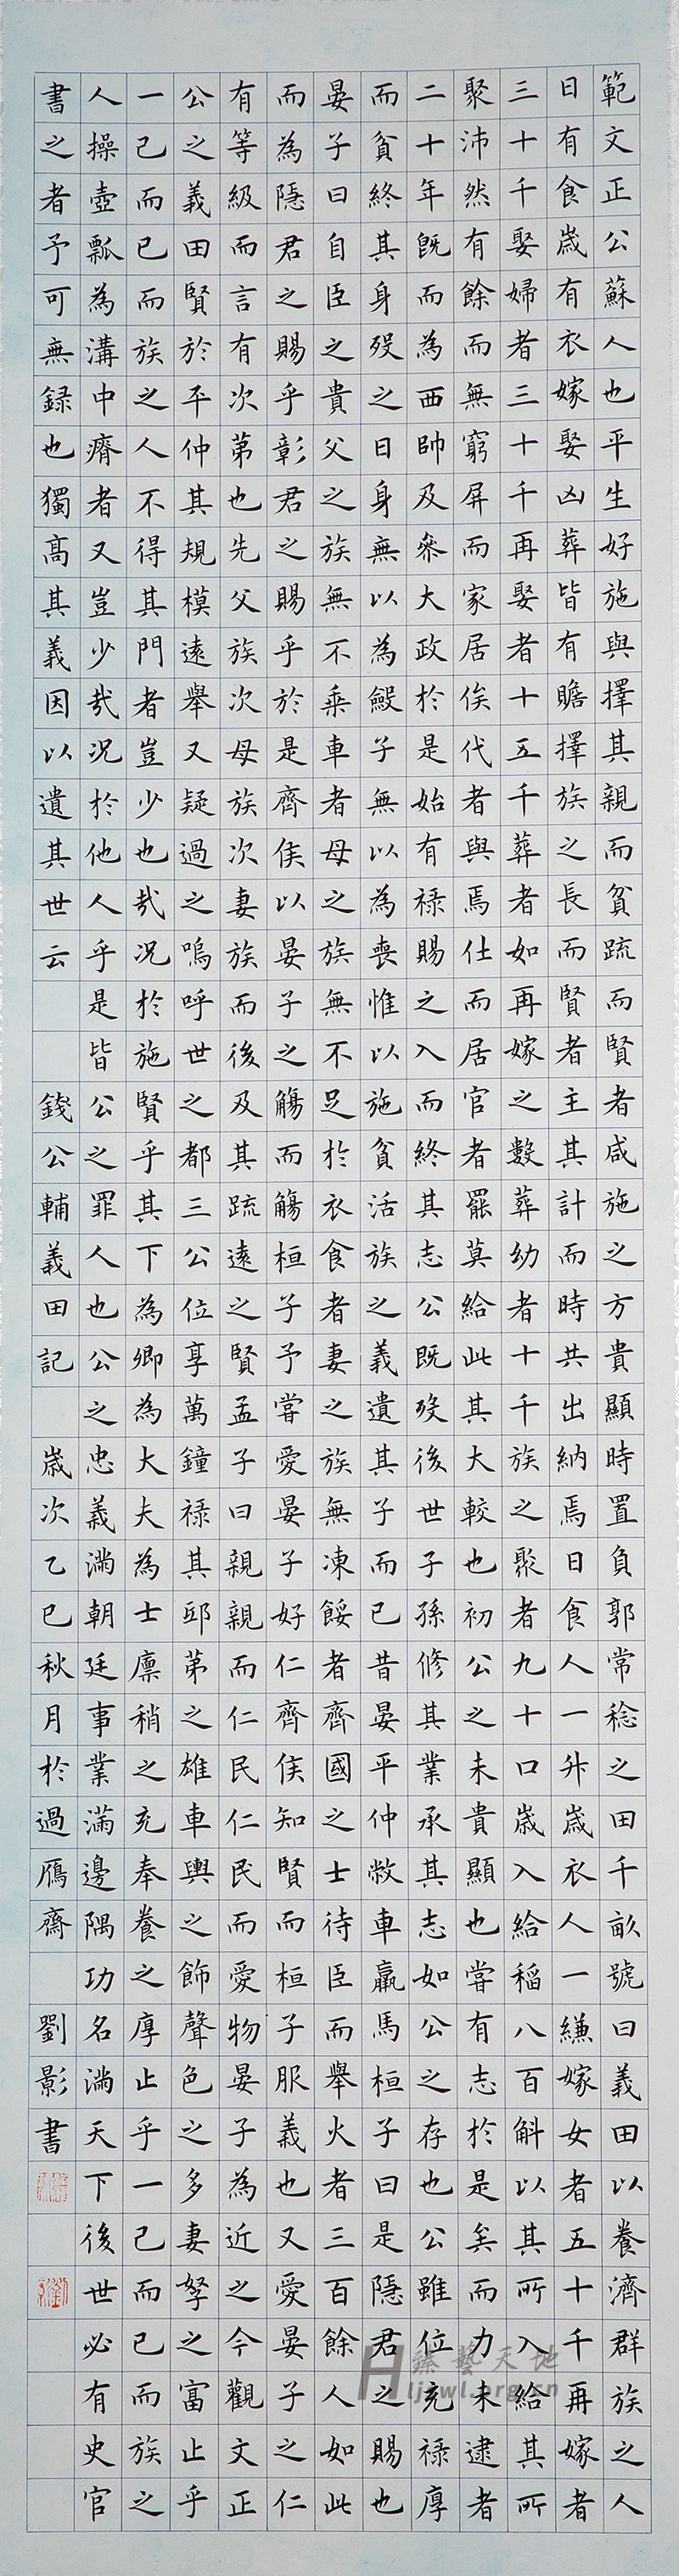 範文正公蘇人也平生好施與擇其親而貧疏而賢者咸施之方貴顯時置負郭常稔之田千畝號曰義田以養濟群族之人
日有食歲有衣嫁娶凶葬皆有贍擇族之長而賢者主其計而時共出納焉日食人一升歲衣人一縑嫁女者五十千再嫁者
三十千娶婦者三十千再娶者十五千葬者如再嫁之數葬幼者十千族之聚者九十口歲入給稻八百斛以其所入給其所
聚沛然有餘而無窮屏而家居俟代者與焉仕而居官者罷莫給此其大較也初公之未貴顯也嘗有志於是矣而力未逮者
二十年既而為西帥及參大政於是始有祿賜之入而終其志公既歿後世子孫修其業承其志如公之存也公雖位充祿厚
而貧終其身歿之日身無以為殮子無以為喪惟以施貧活族之義遺其子而已昔晏平仲敝車羸馬桓子曰是隱君之賜也
晏子曰自臣之貴父之族無不乘車者母之族無不足於衣食者妻之族無凍餒者齊國之士待臣而舉火者三百餘人如此
而為隱君之賜乎彰君之賜乎於是齊侯以晏子之觴而觴桓子予嘗愛晏子好仁齊侯知賢而桓子服義也又愛晏子之仁
有等級而言有次第也先父族次母族次妻族而後及其疏遠之賢孟子曰親親而仁民仁民而愛物晏子為近之今觀文正
公之義田賢於平仲其規模遠舉又疑過之嗚呼世之都三公位享萬鐘祿其邸第之雄車輿之飾聲色之多妻孥之富止乎
一己而已而族之人不得其門者豈少也哉況於施賢乎其下為卿為大夫為士廩稍之充奉養之厚止乎一己而已而族之
人操壺瓢為溝中瘠者又豈少哉況於他人乎是皆公之罪人也公之忠義滿朝廷事業滿邊隅功名滿天下後世必有史官
書之者予可無錄也獨高其義因以遺其世云 錢公輔義田記 歲次乙巳秋月於過鴈齋 劉影書
臻藝天地
ljswl.org.cn